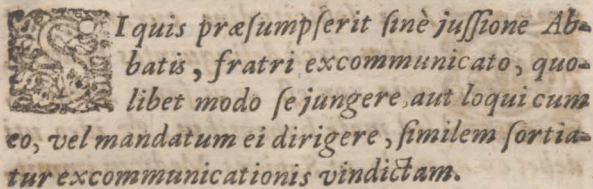 SI quis præſumpſerit ſinè juſſione Ab-
batis, fratri excommunicato, quo-
libet modo ſe jungere, aut loqui cum
eo, vel mandatum ei dirigere, ſimilem ſortia-
tur excommunicationis vindictam.